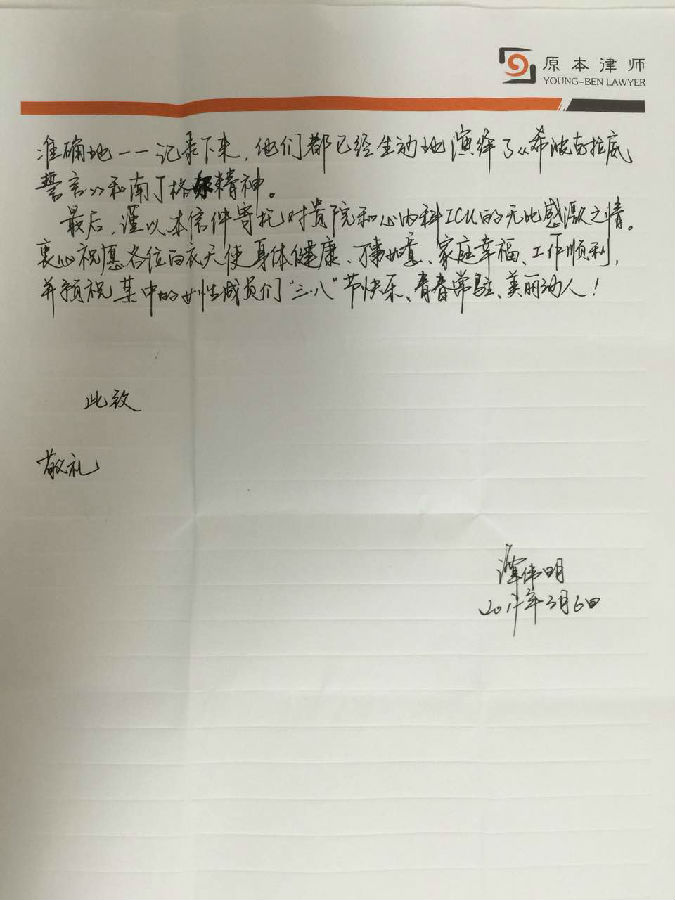 原本律师
YOUNG-BEN LAWYER
准确地一一记录下来，他们都已经生动地演绎了《希波克拉底
誓言》和南丁格尔精神。
最后，谨以本信件寄托对贵院和心内科ICU的无比感激之情。
衷心祝愿各位白衣天使身体健康、万事如意、家庭幸福、工作顺利，
并预祝其中的女性成员们“三·八”节快乐、青春常驻、美丽动人！
此致
敬礼
伟明
年3月6日